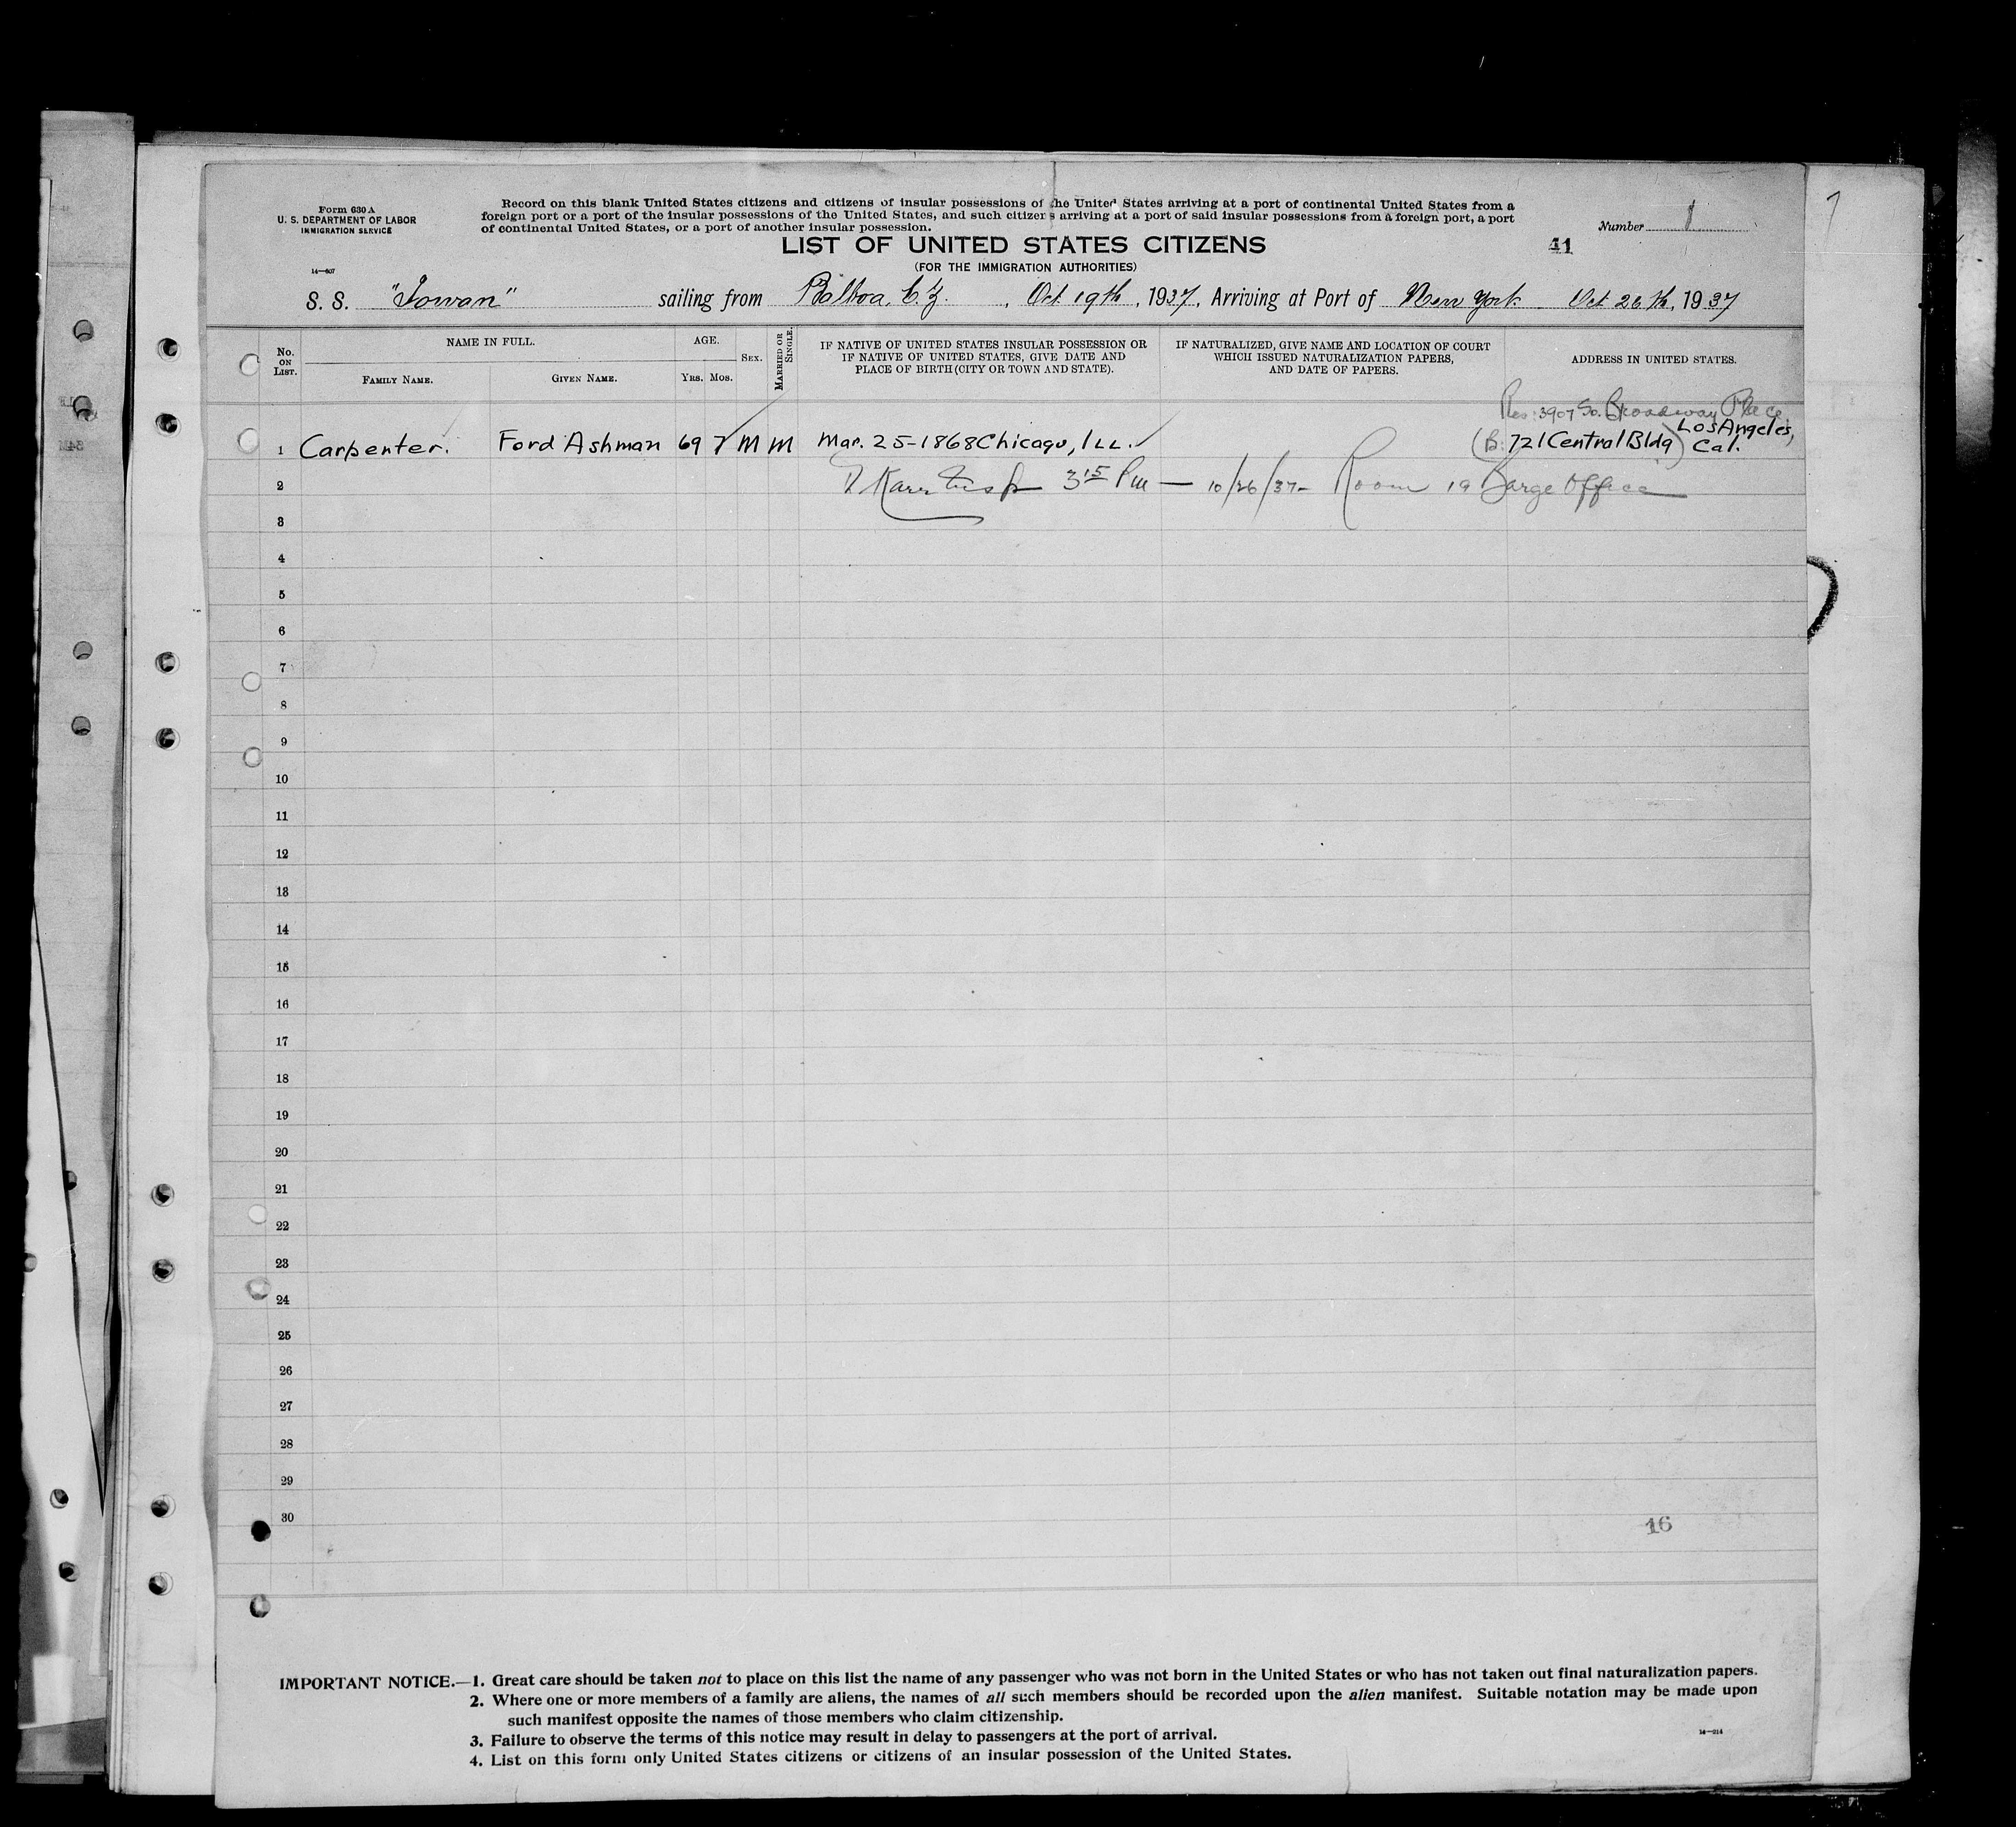 Form 630 A
U. S. DEPARTMENT OF LABOR
IMMIGRATION SERVICE
14—607
Record on this blank United States citizens and citizens of insular possessions of the United States arriving at a port of continental United States from a
foreign port or a port of the insular possessions of the United States, and such citizens arriving at a port of said insular possessions from a foreign port, a port
of continental United States, or a port of another insular possession.
Number 1
LIST OF UNITED STATES CITIZENS
41
(FOR THE IMMIGRATION AUTHORITIES)
S. S. "Iowan" sailing from Balboa, C.Z. , Oct 19th, 1937, Arriving at Port of New York Oct 26th, 1937
No. ON LIST.
NAME IN FULL.
FAMILY NAME.
GIVEN NAME.
AGE.
YRS. MOS.
SEX.
MARRIED OR SINGLE.
IF NATIVE OF UNITED STATES INSULAR POSSESSION OR
IF NATIVE OF UNITED STATES, GIVE DATE AND
PLACE OF BIRTH (CITY OR TOWN AND STATE).
IF NATURALIZED, GIVE NAME AND LOCATION OF COURT
WHICH ISSUED NATURALIZATION PAPERS,
AND DATE OF PAPERS.
ADDRESS IN UNITED STATES.
Res: 3907 So. Broadway Place,
Los Angeles,
1 Carpenter. Ford Ashman 69 7 M M Mar. 25-1868 Chicago, ILL. (B: 721 Central Bldg) Cal.
2 3 15 Pm — 10/26/37 - Room 19 Barge Office
3
4
5
6
7
8
9
10
11
12
13
14
15
16
17
18
19
20
21
22
23
24
25
26
27
28
29
30
16
IMPORTANT NOTICE.—1. Great care should be taken not to place on this list the name of any passenger who was not born in the United States or who has not taken out final naturalization papers.
2. Where one or more members of a family are aliens, the names of all such members should be recorded upon the alien manifest. Suitable notation may be made upon
such manifest opposite the names of those members who claim citizenship.
3. Failure to observe the terms of this notice may result in delay to passengers at the port of arrival.
14—214
4. List on this form only United States citizens or citizens of an insular possession of the United States.